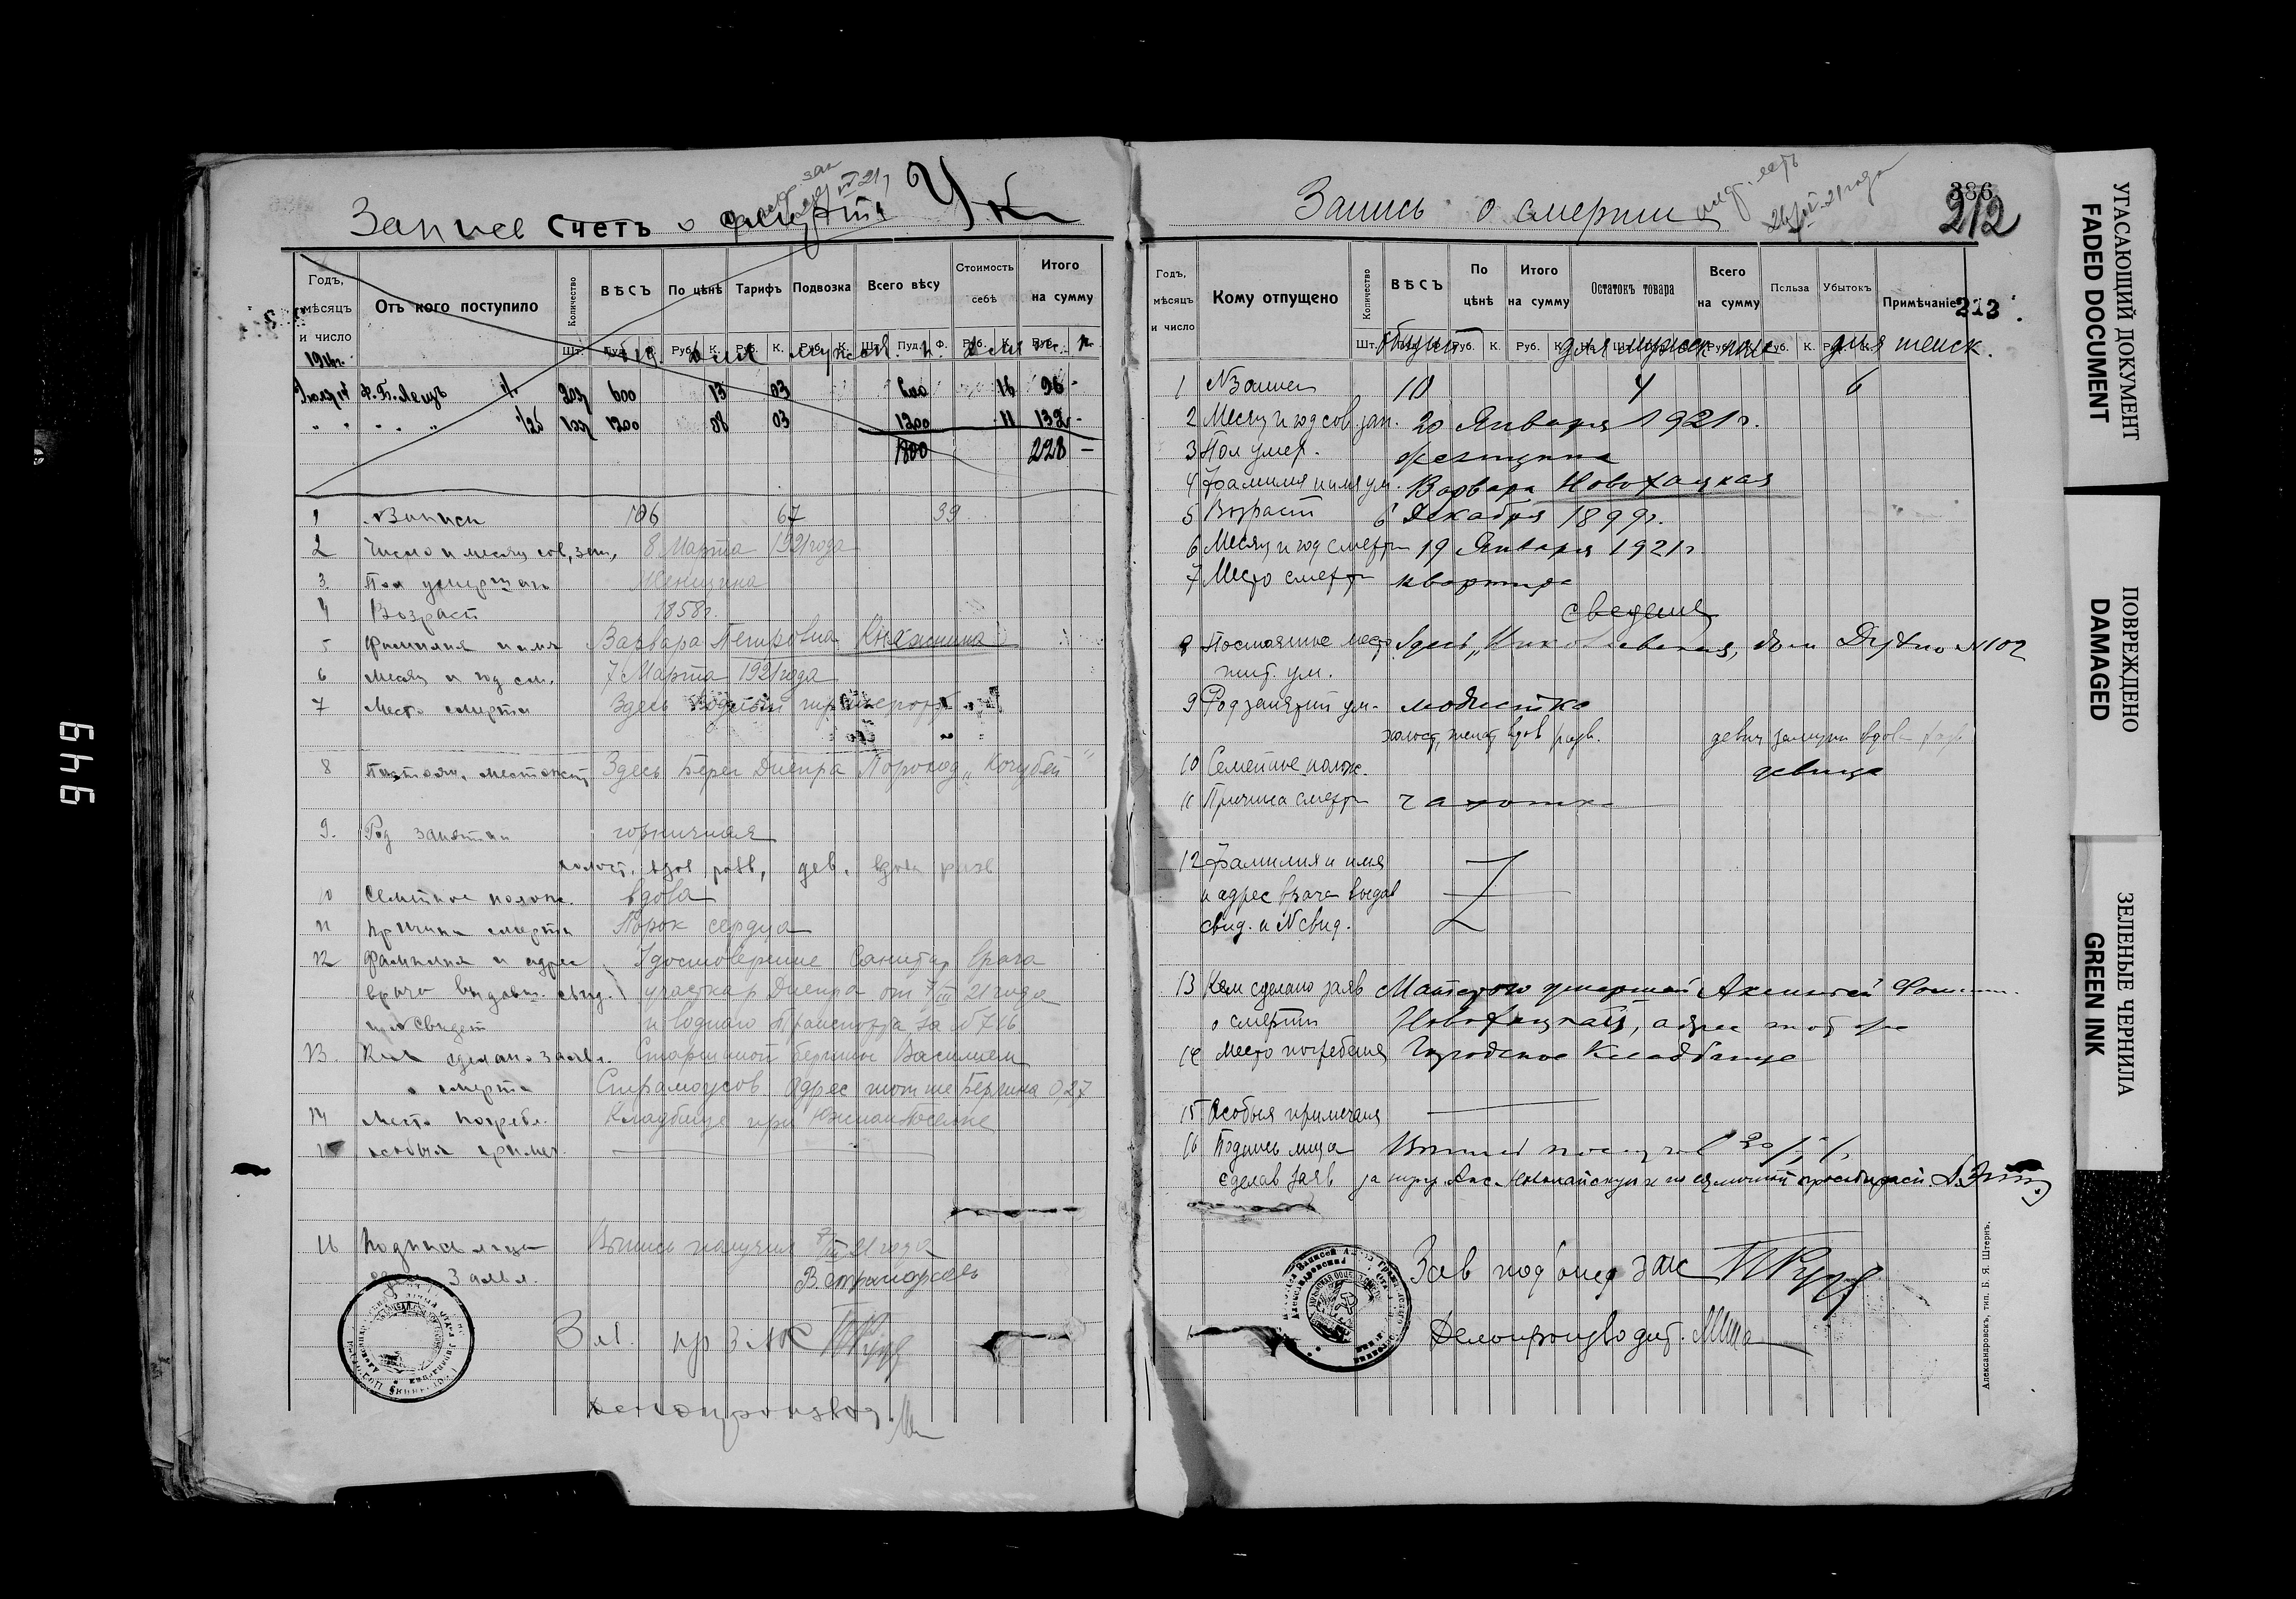 Запись Счетъ о смерти
Годъ, мѣсяцъ и число
Отъ кого поступило
Количество
ВѢСЪ
По цѣнѣ
Тарифъ
Подвозка
Всего вѣсу
Стоимость себѣ
Итого на сумму
Шт. Руб. К. Руб. К. Руб. К. Шт. Пуд. Ф. Руб. К.
1914г.
600 13 03 600 16 96 -
1200 08 03 1200 11 132 -
1800 228 -
1 № записи 106 67 39
2 Число и месяц сов, зап, 8 Марта 1921 года
3. Пол умершаго Женщина
4 Возраст 1858г.
5 Фамилия и имя Варвара Петровна Княжнина
6 Месяц и год см. 7 Марта 1921 года
7 Место смерти Здесь Водный транспорт
8 Постоян. местожит Здесь Берег Днепра Пороход „Кочубей"
9. Род занятии горничная
холост, вдов разв, дев. вдова разв
10 Семейное полож. вдова
11 Причина смерти Порок сердца
12 Фамилия и адрес Удостоверение Санитар врача
врача выдавш. свид. участка р Днепра от 7/III 21 года
и № свидет и водного Транспорта за № 716
13. Кем сделано заявл. Старшиной бержины Василием
о смерти Страмоусов адрес тот же Бержина 027
14 Место погребе. Кладбище при Южнам поселке
15 особыя примеч.
16 Подпись лица Выпись получил 7/III 21 года
сделав заявл.
Зав. пр ЗАК
Делопроизвод.
649
Запись о смерти
386
212
213
Годъ, мѣсяцъ и число
Кому отпущено
Количество
ВѢСЪ
По цѣнѣ
Итого на сумму
Остатокъ товара
Всего на сумму
Польза
Убытокъ
Примѣчаніе
общий для мужск пол для женск.
1 № записи 10 4 6
2 Месяц и год сов. зап. 20 Января 1921г.
3 Пол умер. женщина
4 Фамилия и имя ум. Варвара Новохацкая
5 Возраст 6 Декабря 1899г.
6 Месяц и год смерти 19 Января 1921г
7 Место смерти квартира
сведения
8 Постоянное место Здесь, Николаевская, дом № 102
жит. ум.
9 Род занятий ум. модистка
холост, женат вдов разв. девиц замужн вдова разв
10 Семейное полож. девица
11 Причина смерти чахотка
12 Фамилия и имя
и адрес врача выдав
свид. и № свид.
13 Кем сделано заяв Матерью умершей Аксинией
о смерти Новохацкой, адрес тот же
14 Место погребения Городское Кладбище
15 Особыя примечания
16 Подпись лица Выпись получил
сделав заяв
Зав подотд ЗАК
Делопроизводит.
Александровскъ, тип. Б. Я. Штернъ.
УГАСАЮЩИЙ ДОКУМЕНТ
FADED DOCUMENT
ПОВРЕЖДЕНО
DAMAGED
ЗЕЛЕНЫЕ ЧЕРНИЛА
GREEN INK